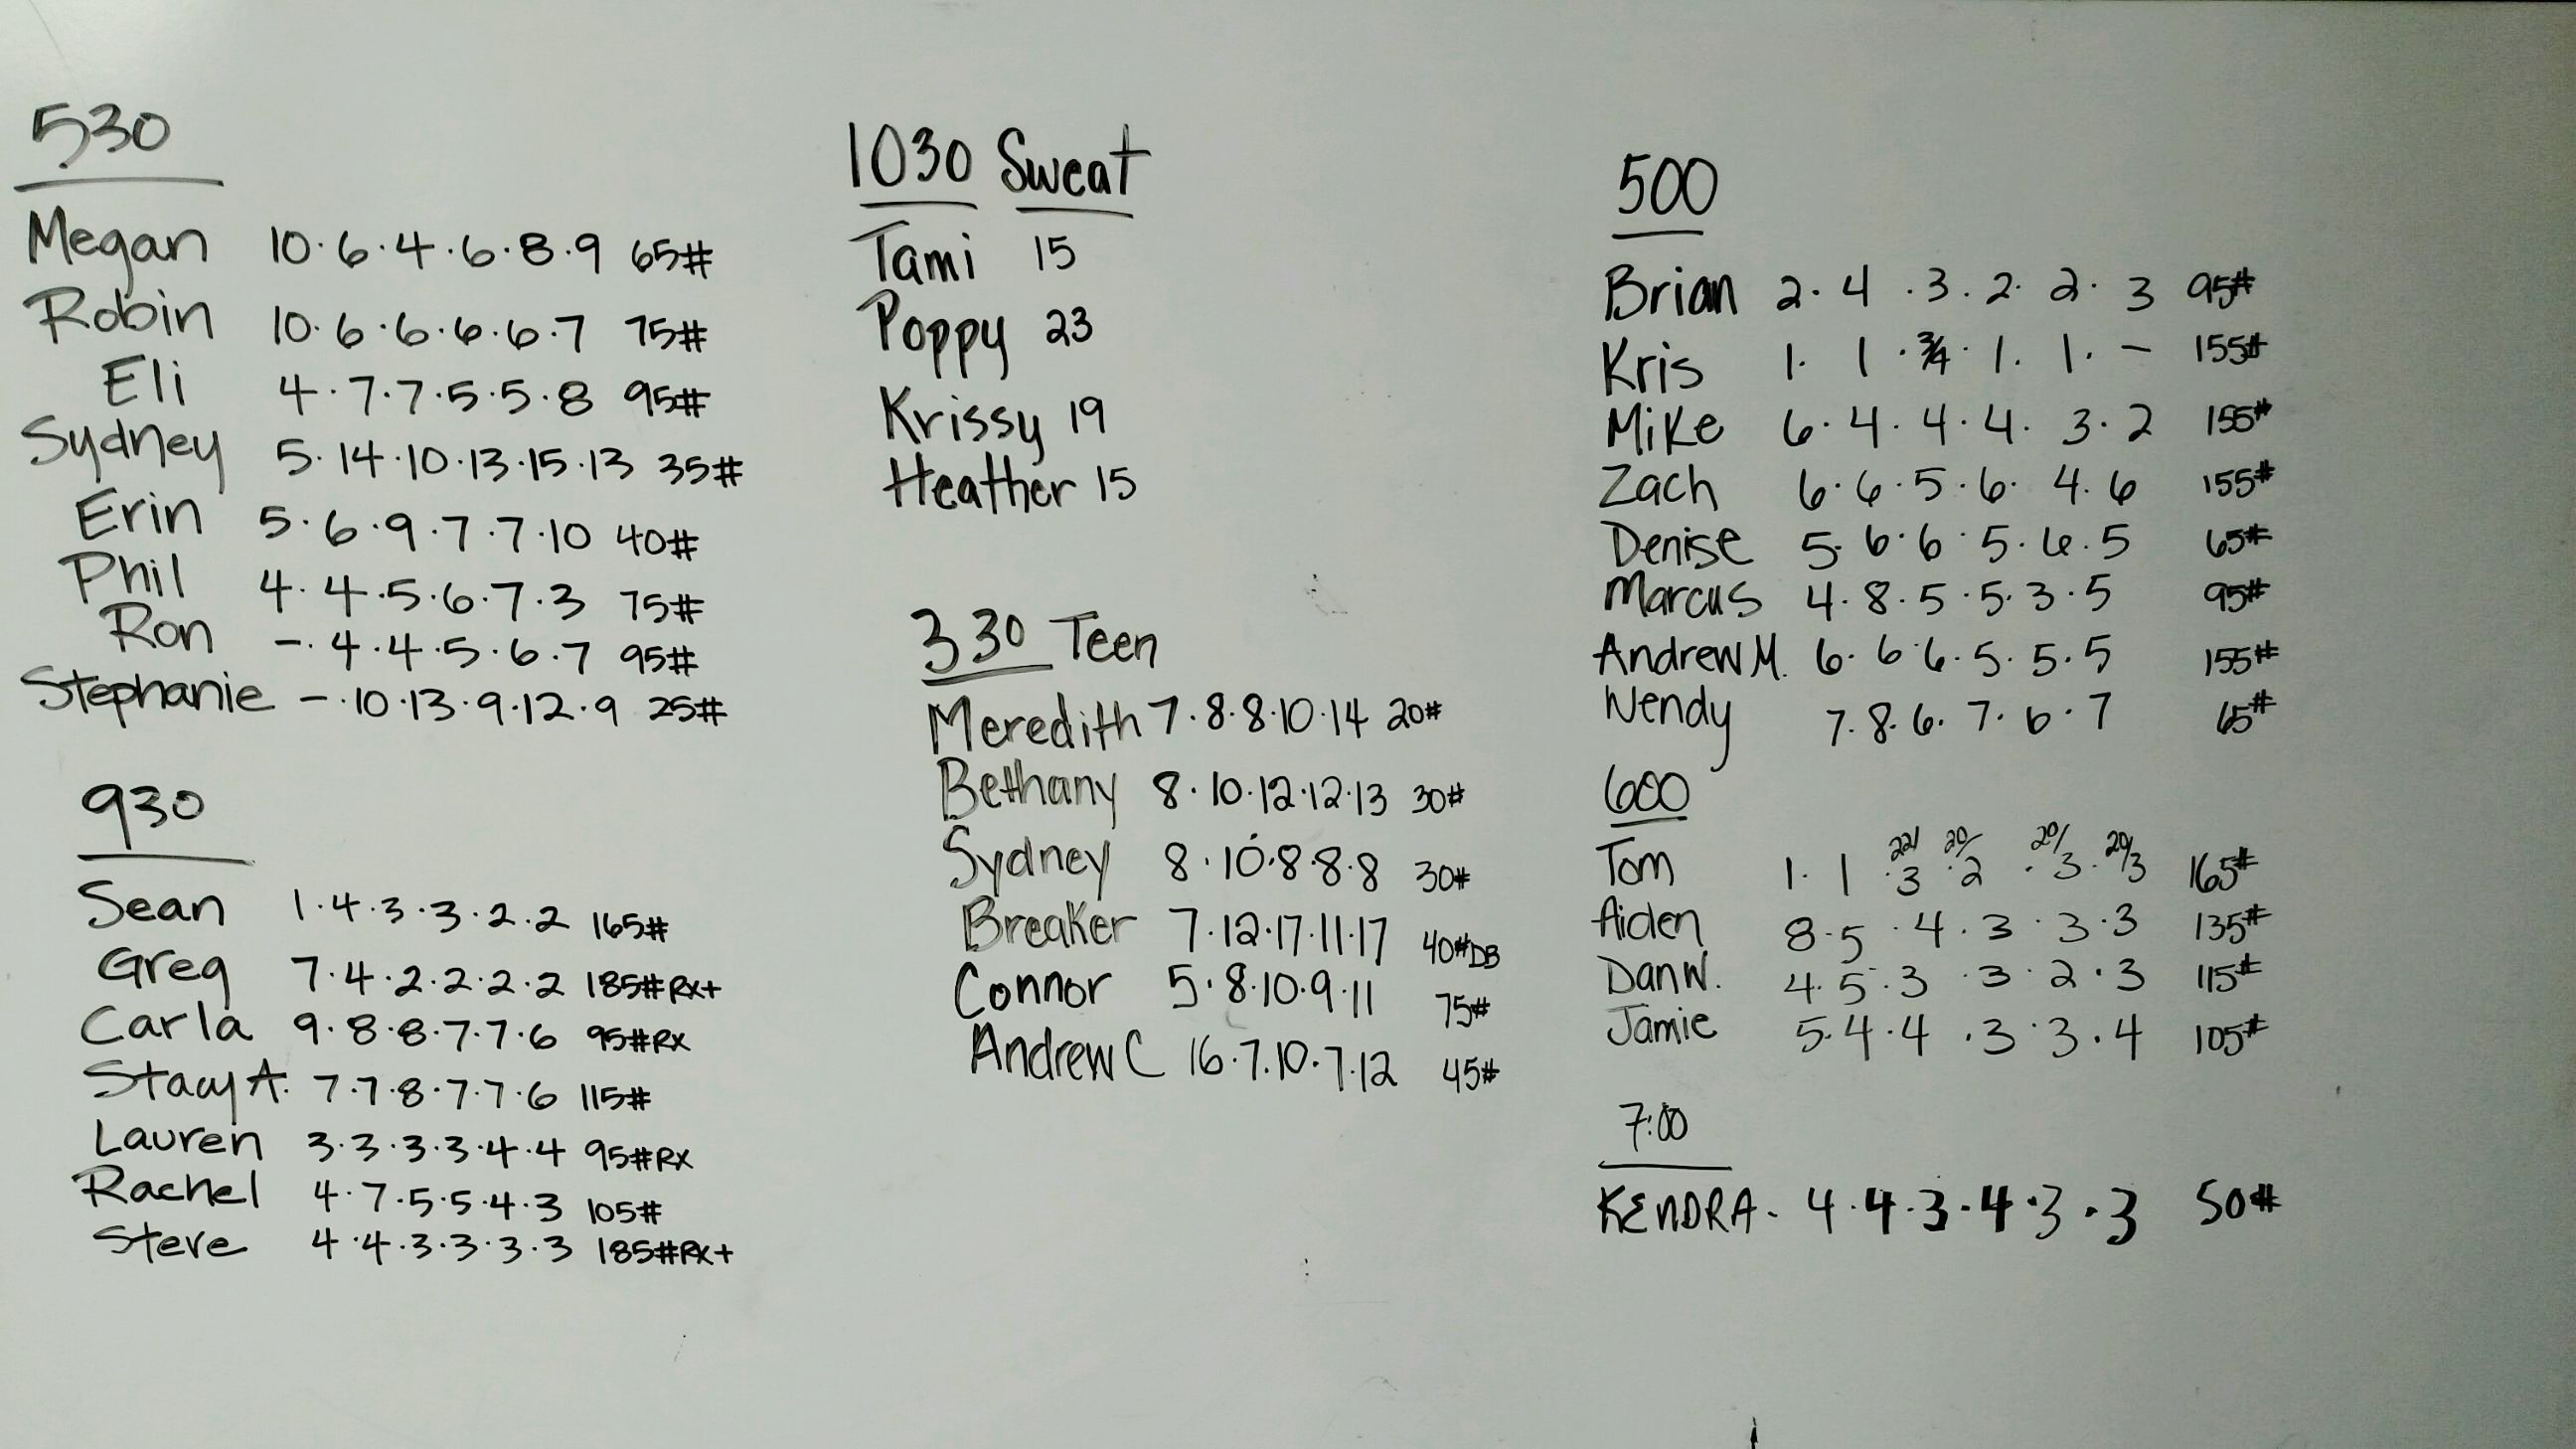 530
Megan 10·6·4·6·8·9 65#
Robin 10·6·6·6·6·7 75#
Eli 4·7·7·5·5·8 95#
Sydney 5·14·10·13·15·13 35#
Erin 5·6·9·7·7·10 40#
Phil 4·4·5·6·7·3 75#
Ron -·4·4·5·6·7 95#
Stephanie -·10·13·9·12·9 25#
930
Sean 1·4·3·3·2·2 165#
Greg 7·4·2·2·2·2 185#RX+
Carla 9·8·8·7·7·6 95#RX
Stacy A. 7·7·8·7·7·6 115#
Lauren 3·3·3·3·4·4 95#RX
Rachel 4·7·5·5·4·3 105#
Steve 4·4·3·3·3·3 185#RX+
1030 Sweat
Tami 15
Poppy 23
Krissy 19
Heather 15
330 Teen
Meredith 7·8·8·10·14 20#
Bethany 8·10·12·12·13 30#
Sydney 8·10·8·8·8 30#
Breaker 7·12·17·11·17 40#DB
Connor 5·8·10·9·11 75#
Andrew C 16·7·10·7·12 45#
500
Brian 2·4·3·2·2·3 95#
Kris 1·1·3/4·1·1·- 155#
Mike 6·4·4·4·3·2 155#
Zach 6·6·5·6·4·6 155#
Denise 5·6·6·5·6·5 65#
Marcus 4·8·5·5·3·5 95#
Andrew M. 6·6·6·5·5·5 155#
Wendy 7·8·6·7·6·7 65#
600
Tom 1·1·22/3·20/2·20/3·20/3 165#
Aiden 8·5·4·3·3·3 135#
Dan W. 4·5·3·3·2·3 115#
Jamie 5·4·4·3·3·4 105#
7:00
KENDRA- 4·4·3·4·3·3 50#